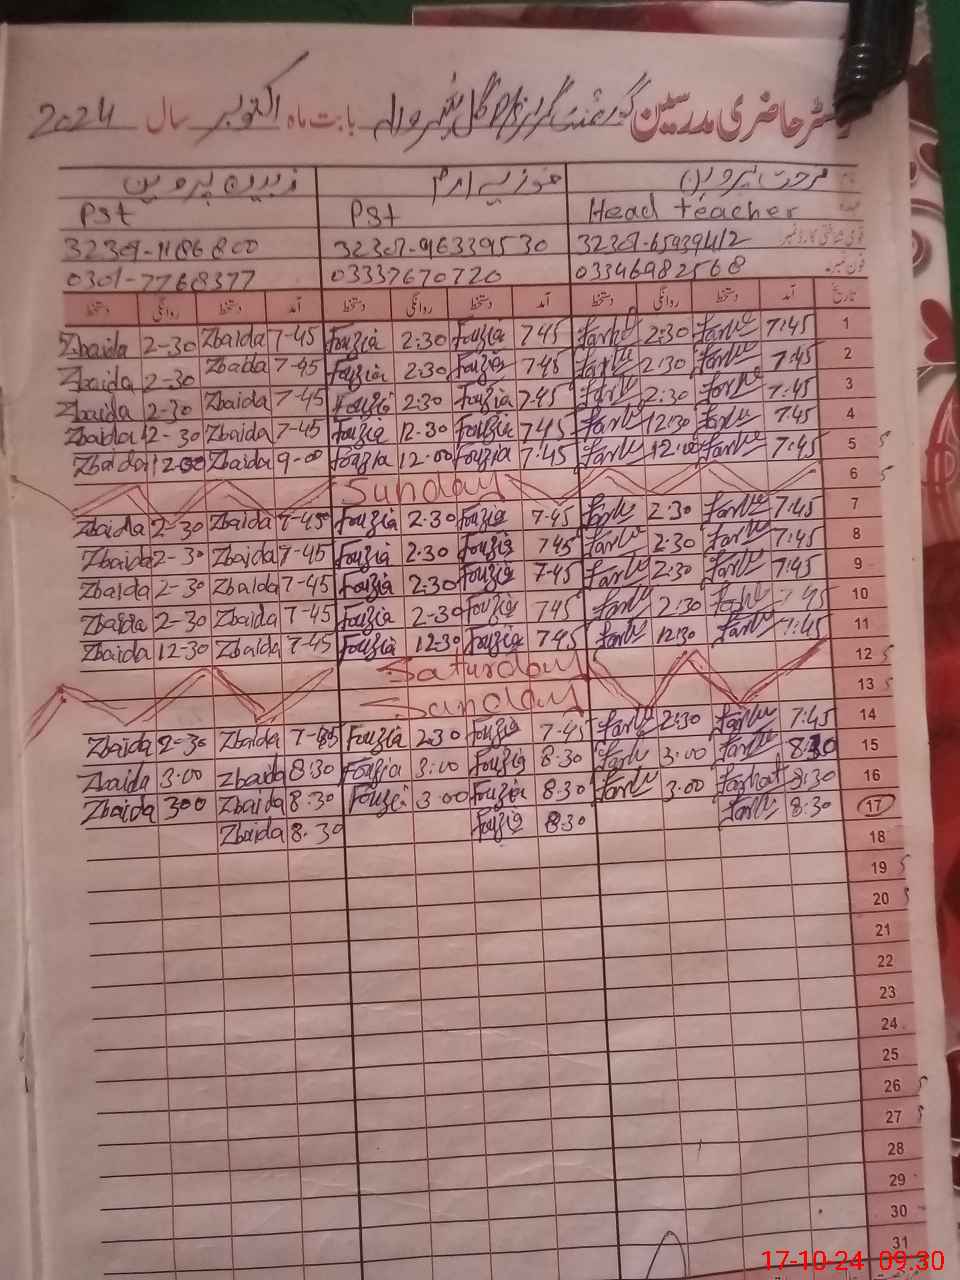 رجسٹر حاضری مدرسین گورنمنٹ گرلز بابت ماہ اکتوبر سال 2024
فرحت پروین فوزیہ ارم زبیدہ پروین
Head teacher PST PST
قومی شناختی کارڈ نمبر 32307-9633953 0 32307-1186800
فون نمبر 03346982568 03337670720 0301-7768377
تاریخ آمد دستخط روانگی دستخط آمد دستخط روانگی دستخط آمد دستخط روانگی دستخط
1 7:45 2:30 7 45 Fouzia 2:30 Fouzia 7-45 Zbaida 2-30 Zbaida
2 7:45 2:30 7 45 Fouzia 2:30 Fouzia 7-45 Zbaida 2-30 Zbaida
3 7:45 2:30 7.45 Fouzia 2:30 Fouzia 7-45 Zbaida 2-30 Zbaida
4 7:45 12:30 7 45 Fouzia 12.30 Fouzia 7-45 Zbaida 12-30 Zbaida
5 7:45 12:00 7:45 Fouzia 12.00 Fouzia 9-00 Zbaida 12-00 Zbaida
6 Sunday
7 7:45 2:30 7-45 Fouzia 2.30 Fouzia 7-45 Zbaida 2-30 Zbaida
8 7:45 2:30 7 45 Fouzia 2.30 Fouzia 7-45 Zbaida 2-30 Zbaida
9 7:45 2:30 7-45 Fouzia 2-30 Fouzia 7-45 Zbaida 2-30 Zbaida
10 7:45 2:30 7 45 Fouzia 2-30 Fouzia 7-45 Zbaida 2-30 Zbaida
11 7:45 12:30 7 45 Fouzia 12-30 Fouzia 7-45 Zbaida 12-30 Zbaida
12 Saturday
13 Sunday
14 7:45 2:30 7-45 Fouzia 2.30 Fouzia 7-45 Zbaida 2-30 Zbaida
15 8:30 3:00 8:30 Fouzia 3:00 Fouzia 8:30 Zbaida 3:00 Zbaida
16 8:30 Farhat 3:00 8.30 Fouzia 3 00 Fouzia 8.30 Zbaida 300 Zbaida
17 8:30 8:30 Fouzia 8.30 Zbaida
18
19
20
21
22
23
24
25
26
27
28
29
30
31
17-10-24 09.30